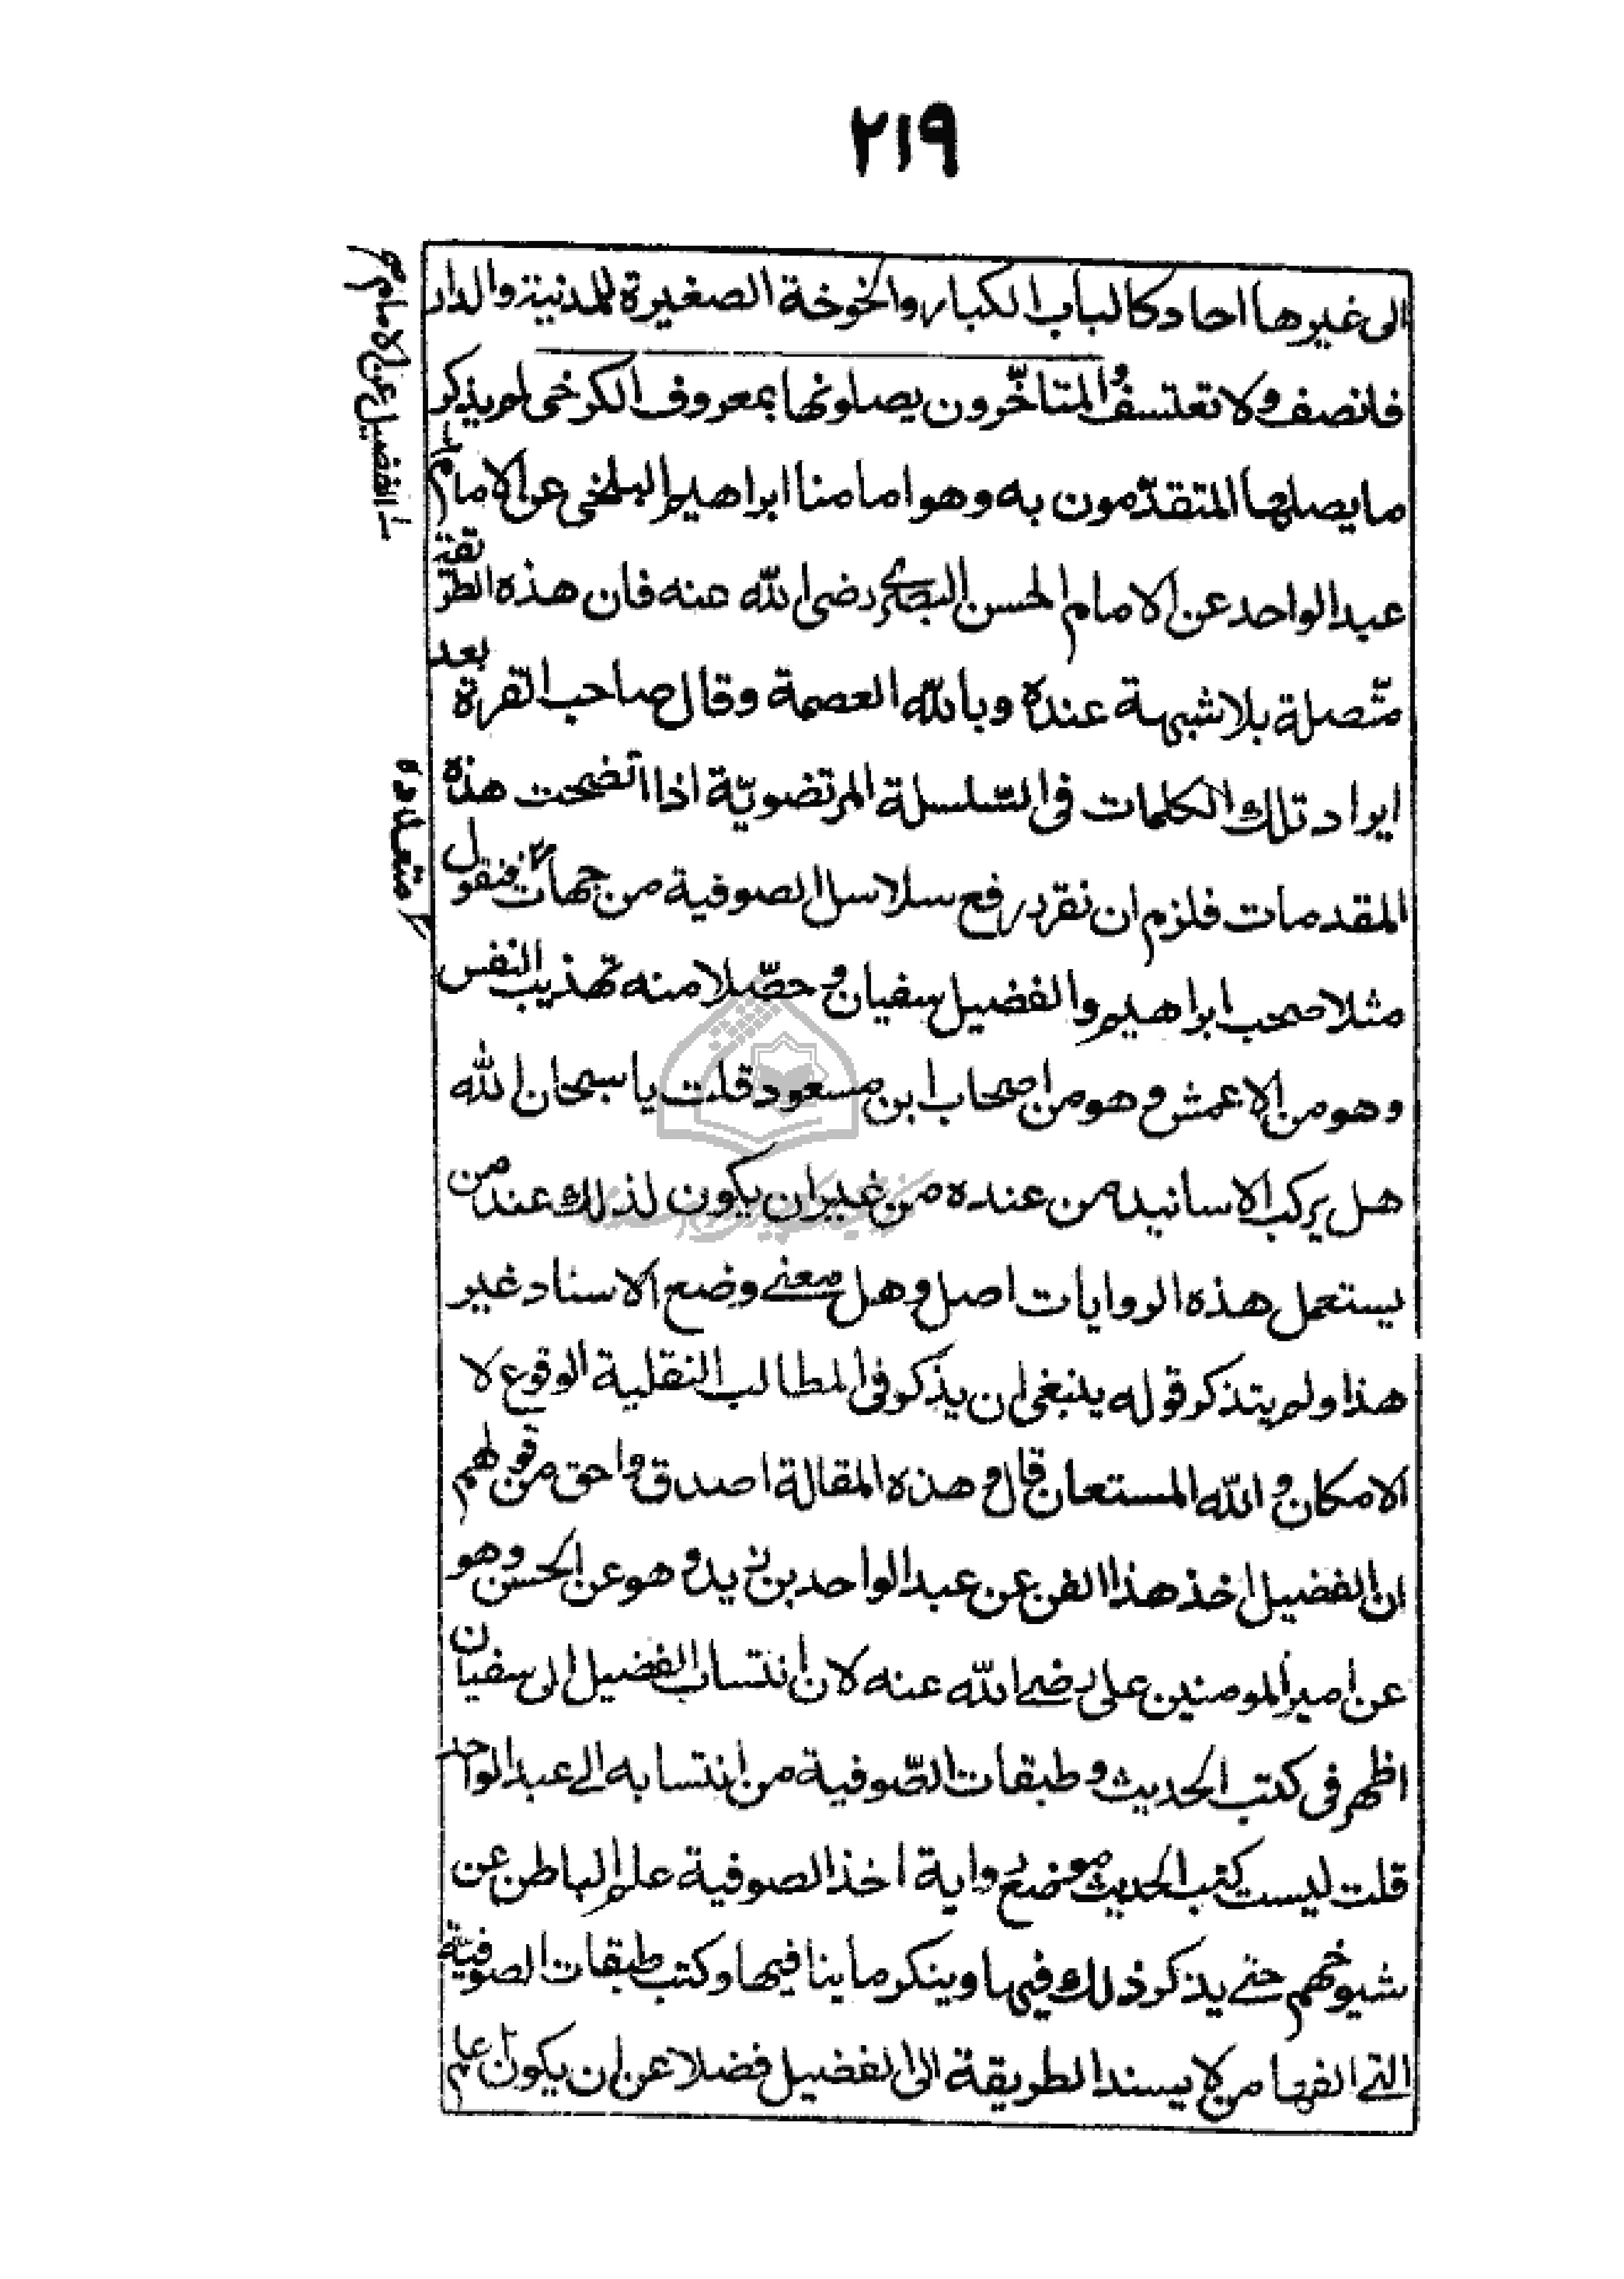 ٢١٩
الى غيرها احاد كالباب الكبار والخوخة الصغيرة للمدنية والدار
فانصف ولا تعتسف والمتاخّرون يصلونها بمعروف الكرخى لم يذكر
ما يصلها المتقدّمون به وهو امامنا ابراهيم البلخى عن الامام
عبد الواحد عن الامام الحسن البصرى رضى الله عنه فان هذه الطريقة
متّصلة بلا شبهة عنده وبالله العصمة وقال صاحب القرة بعد
ايراد تلك الكلمات فى السّلسلة المرتضويّة اذا اتضحت هذه
المقدمات فلزم ان نقرر رفع سلاسل الصوفية من جهات فنقول
مثلا صحب ابراهيم والفضيل سفيان وحصّلا منه تهذيب النفس
وهو من الاعمش وهو من اصحاب ابن مسعود قلت يا سبحان الله
هل يركب الاسانيد من عنده من غير ان يكون لذلك عند من
يستعمل هذه الروايات اصل وهل معنے وضع الاسناد غير
هذا ولم يتذكر قوله ينبغى ان يذكر فى المطالب النقلية الوقوع لا
الامكان والله المستعان قال وهذه المقالة اصدق واحق من قولهم
ان الفضيل اخذ هذا الفن عن عبد الواحد بن زيد وهو عن الحسن وهو
عن امير المومنين على رضے الله عنه لان انتساب الفضيل الى سفيان
اظهر فى كتب الحديث وطبقات الصّوفية من انتسابه الے عبد الواحد
قلت ليست كتب الحديث موضع رواية اخذ الصوفية علم الباطن عن
شيوخهم حتے يذكر ذلك فيها وينكر ما ينافيها وكتب طبقات الصوفيّة
التے الفها من لا يسند الطريقة الى الفضيل فضلا عن ان يكون
ے الفضيل عن الامام
متعددة